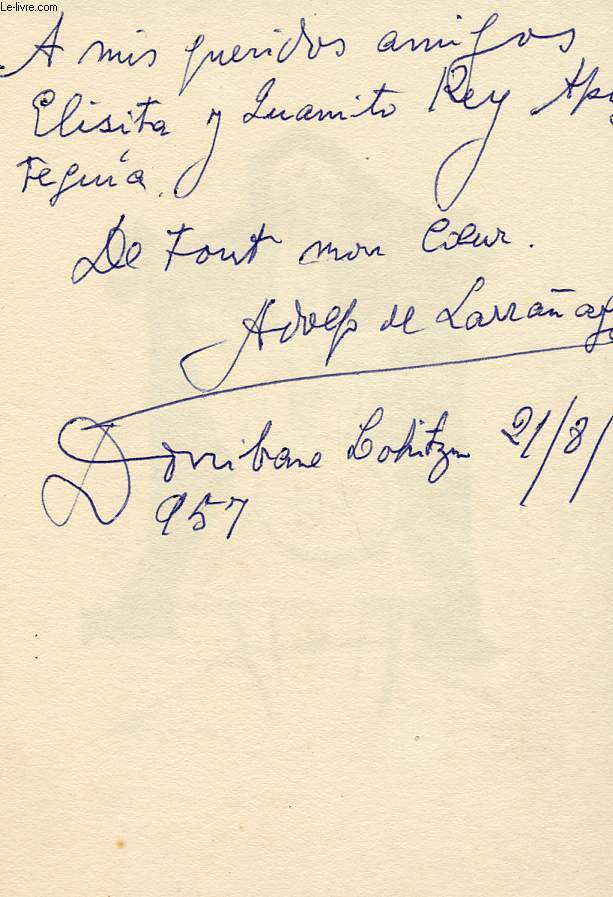 Le-livre.com
A mis queridos amigos
Elisita y Juanito Rey Apa
teguía.
De tout mon Cœur.
Adolfo de Larrañag
Donibane Lohitzun 21/8/
957